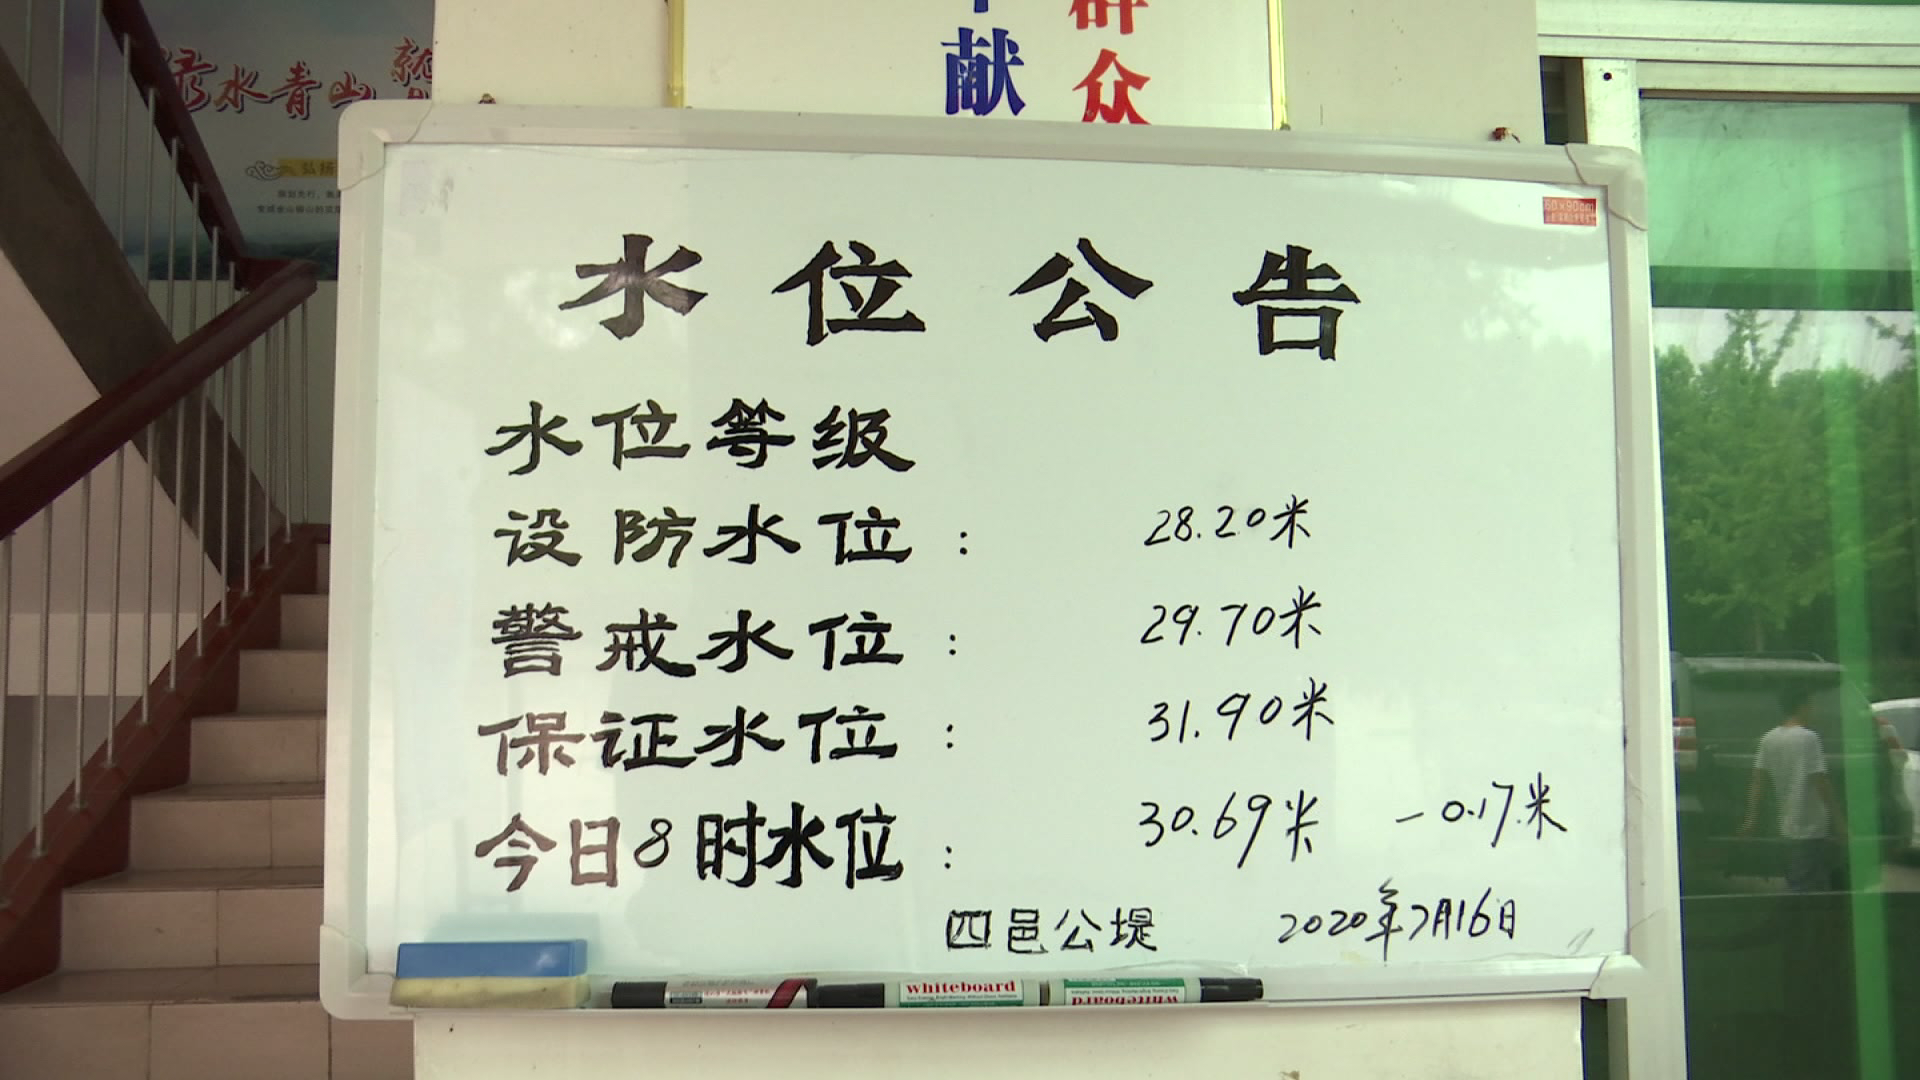 献
群
众
绿水青山
弘扬
60×90cm
水位公告
水位等级
设防水位： 28.20米
警戒水位： 29.70米
保证水位： 31.90米
今日8时水位： 30.69米 -0.17米
四邑公堤 2020年7月16日
whiteboard
whiteboard